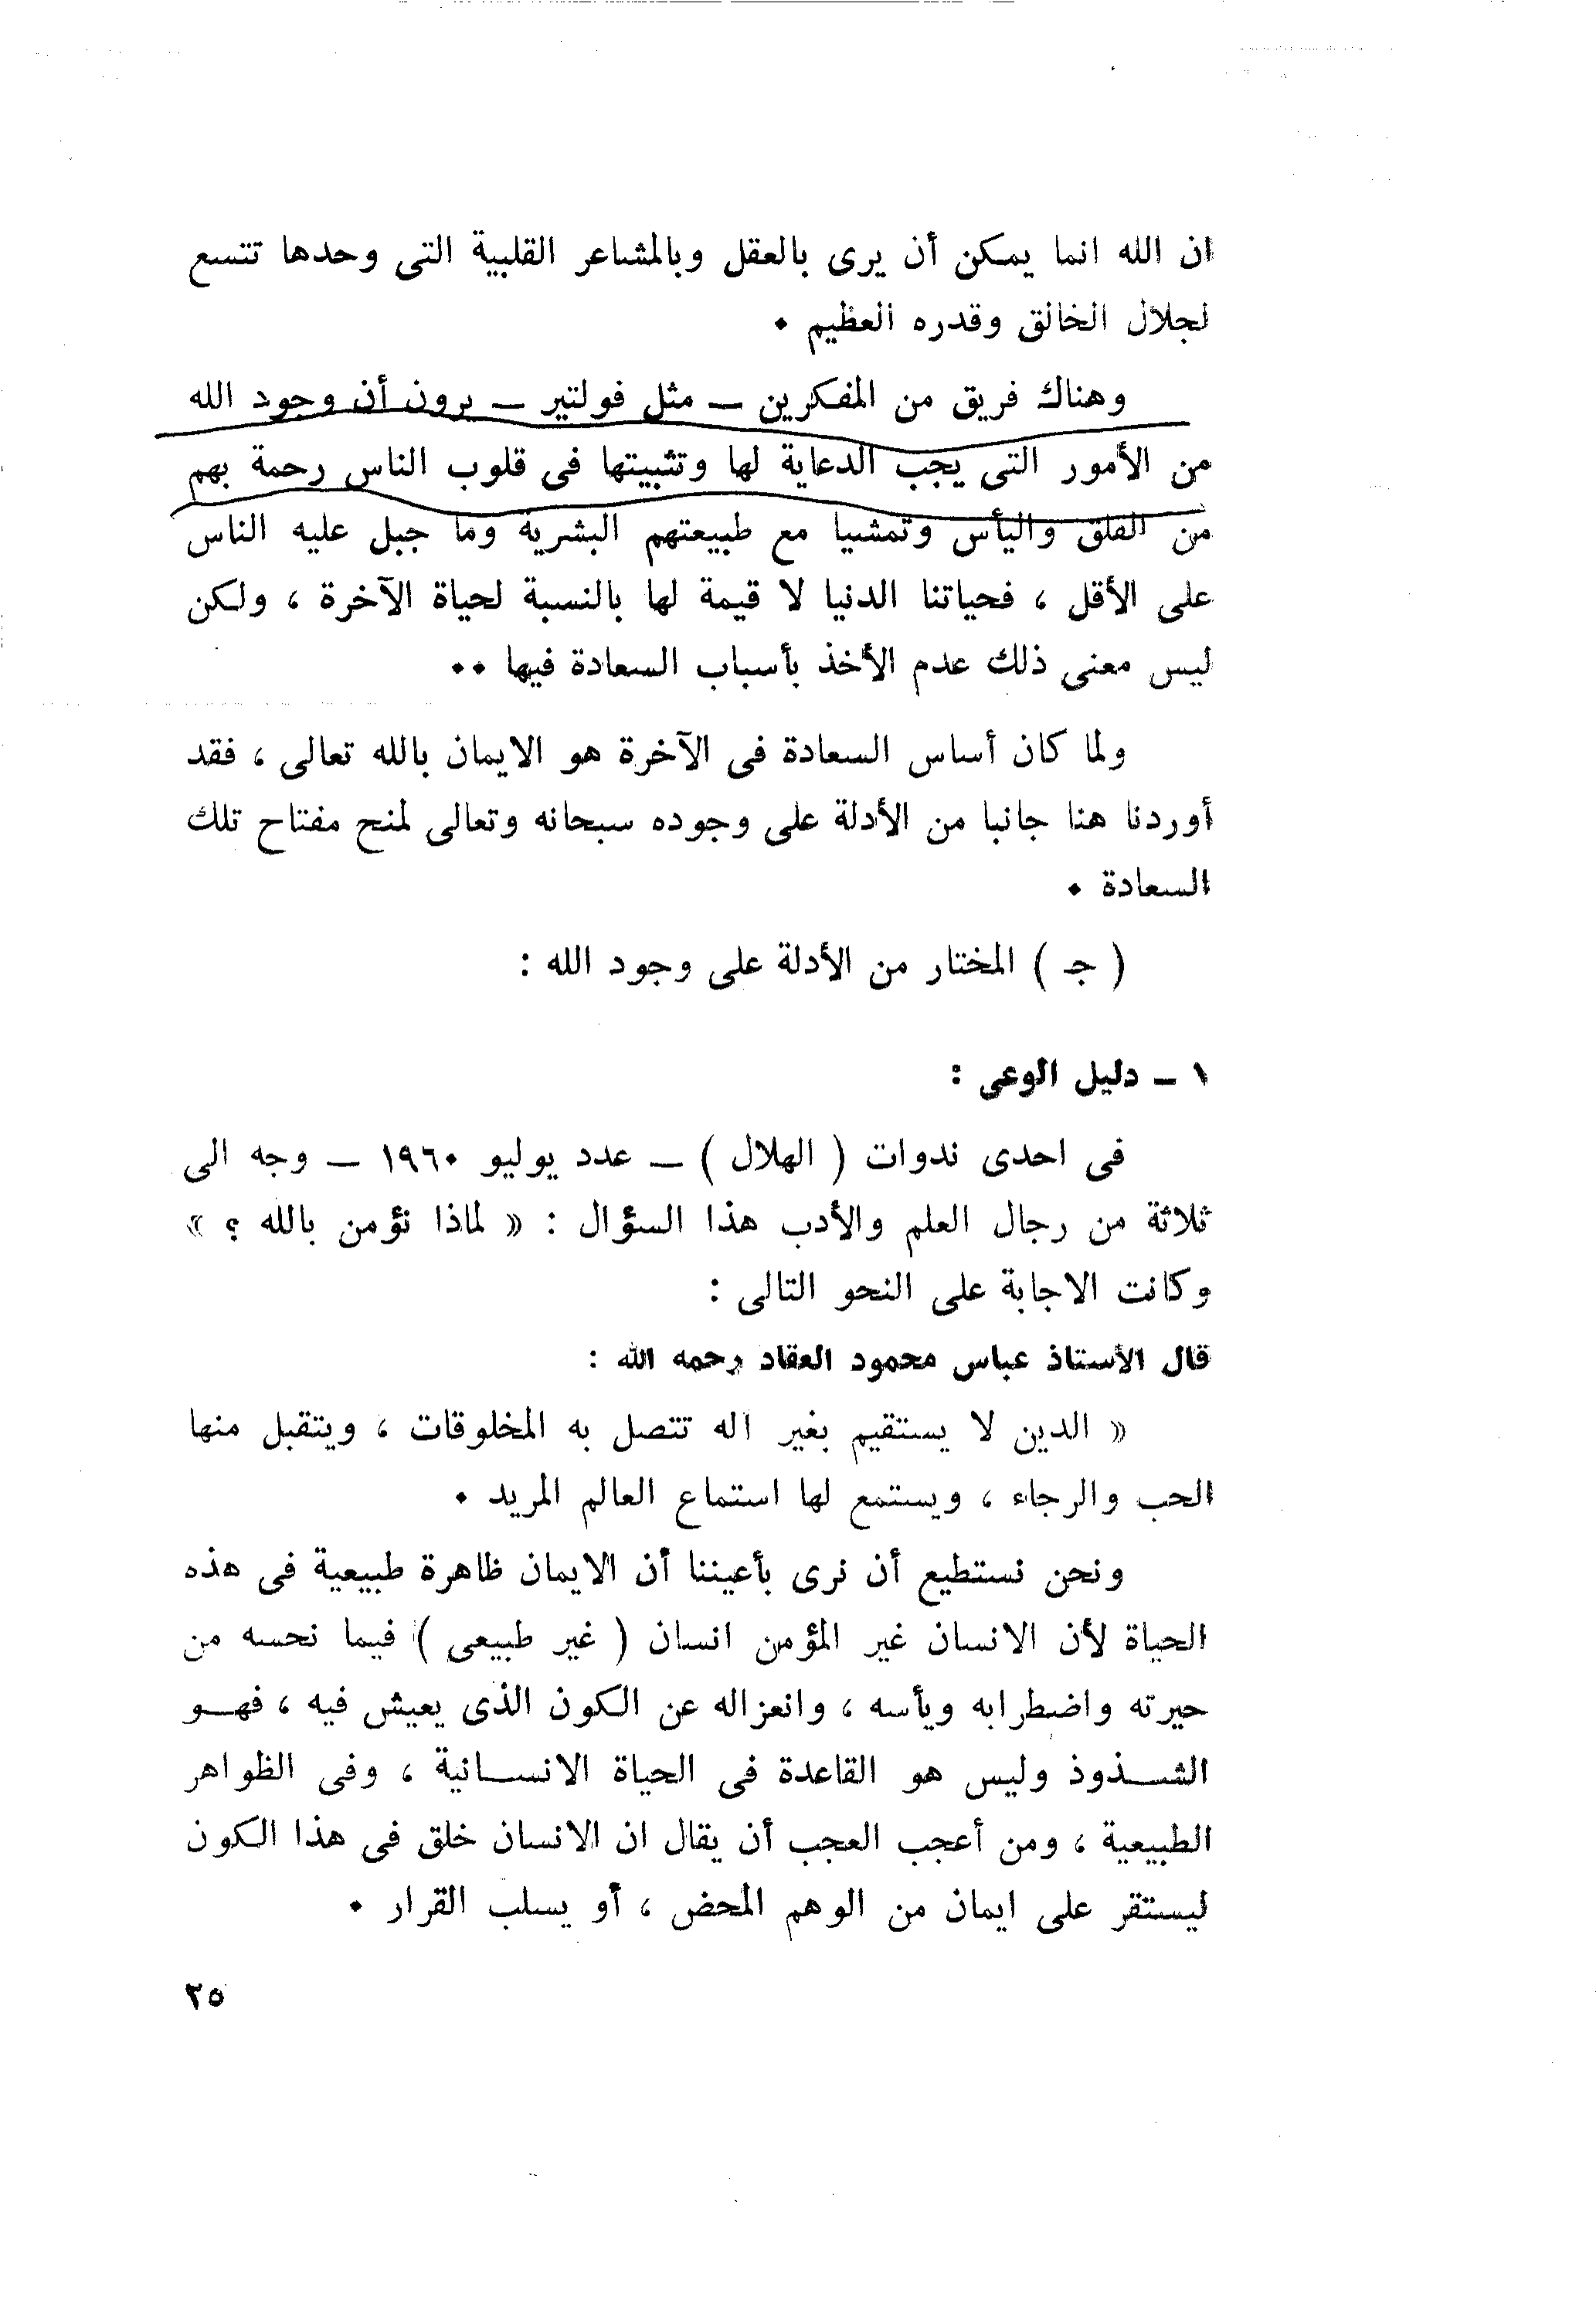 ان الله انما يمكن أن يرى بالعقل وبالمشاعر القلبية التى وحدها تتسع
لجلال الخالق وقدره العظيم .
وهناك فريق من المفكرين – مثل فولتير – يرون أن وجود الله
من الأمور التى يجب الدعاية لها وتثبيتها فى قلوب الناس رحمة بهم
من القلق واليأس وتمشيا مع طبيعتهم البشرية وما جبل عليه الناس
على الأقل ، فحياتنا الدنيا لا قيمة لها بالنسبة لحياة الآخرة ، ولكن
ليس معنى ذلك عدم الأخذ بأسباب السعادة فيها ..
ولما كان أساس السعادة فى الآخرة هو الايمان بالله تعالى ، فقد
أوردنا هنا جانبا من الأدلة على وجوده سبحانه وتعالى لمنح مفتاح تلك
السعادة .
( جـ ) المختار من الأدلة على وجود الله :
١ – دليل الوعى :
فى احدى ندوات ( الهلال ) – عدد يوليو ١٩٦٠ – وجه الى
ثلاثة من رجال العلم والأدب هذا السؤال : « لماذا نؤمن بالله ؟ »
وكانت الاجابة على النحو التالى :
قال الأستاذ عباس محمود العقاد رحمه الله :
« الدين لا يستقيم بغير اله تتصل به المخلوقات ، ويتقبل منها
الحب والرجاء ، ويستمع لها استماع العالم المريد .
ونحن نستطيع أن نرى بأعيننا أن الايمان ظاهرة طبيعية فى هذه
الحياة لأن الانسان غير المؤمن انسان ( غير طبيعى ) فيما نحسه من
حيرته واضطرابه ويأسه ، وانعزاله عن الكون الذى يعيش فيه ، فهـو
الشـذوذ وليس هو القاعدة فى الحياة الانسـانية ، وفى الظواهر
الطبيعية ، ومن أعجب العجب أن يقال ان الانسان خلق فى هذا الكون
ليستقر على ايمان من الوهم المحض ، أو يسلب القرار .
٢٥